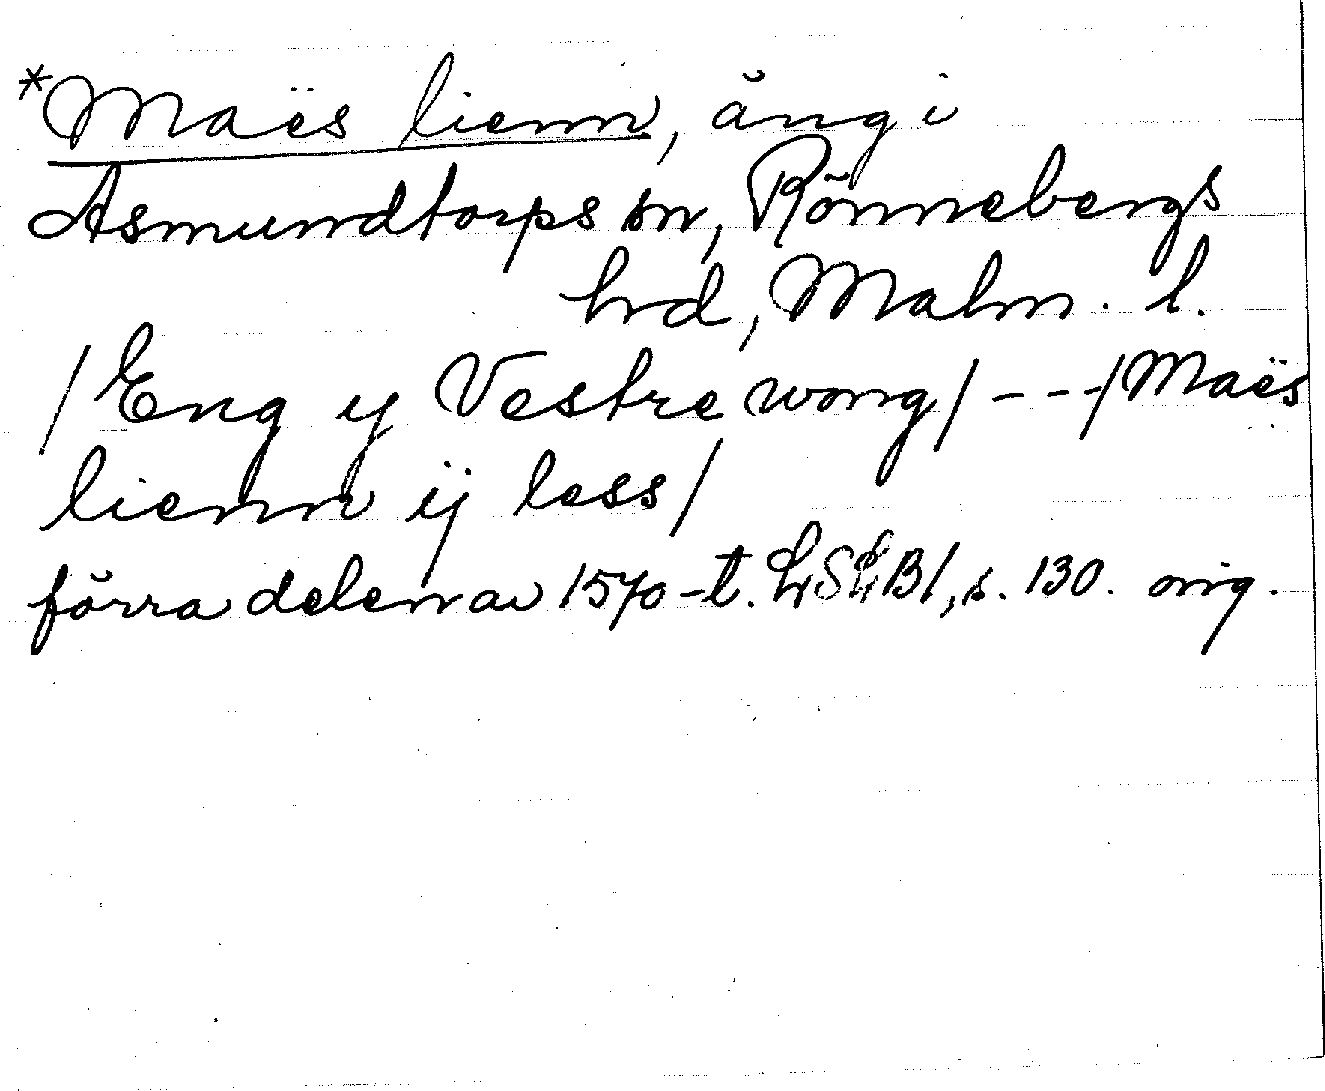 *Maës lienn, äng i
Asmundtorps sn, Rönnebergs
hrd, Malm. l.
/Eng y Vestre wong/ - - -/Maës
lienn ÿ less/
förra delen av 1570-t. LSLB1, s. 130. orig.